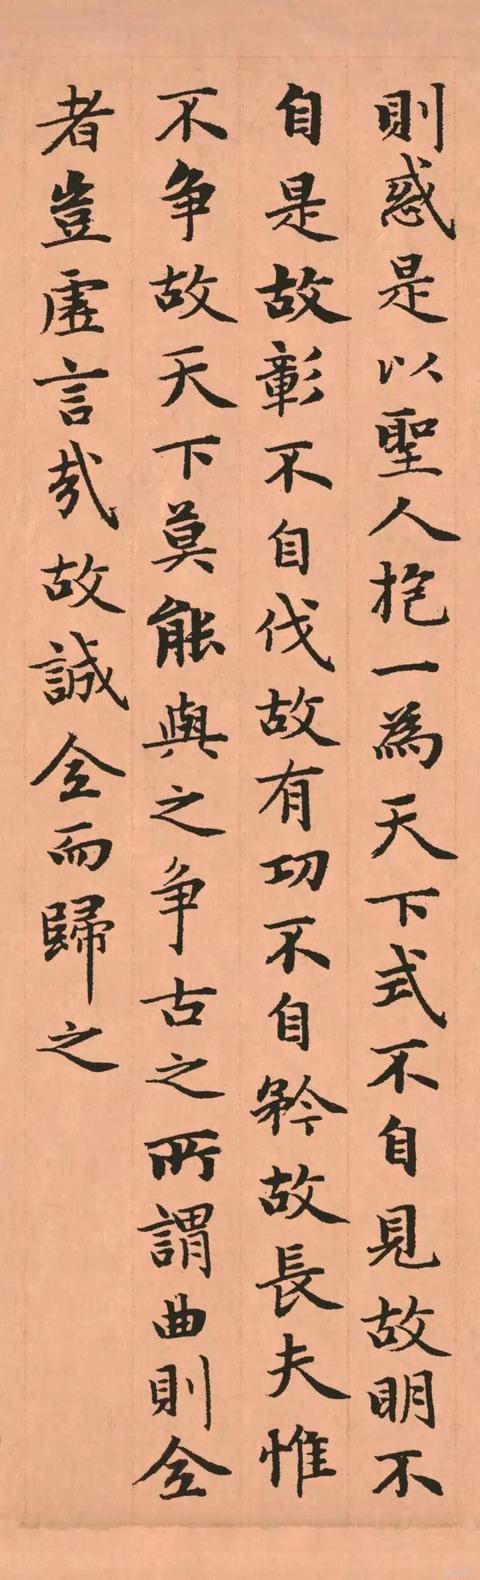 則惑是以聖人抱一為天下式不自見故明不
自是故彰不自伐故有功不自矜故長夫惟
不争故天下莫能與之争古之所謂曲則全
者豈虛言哉故誠全而歸之